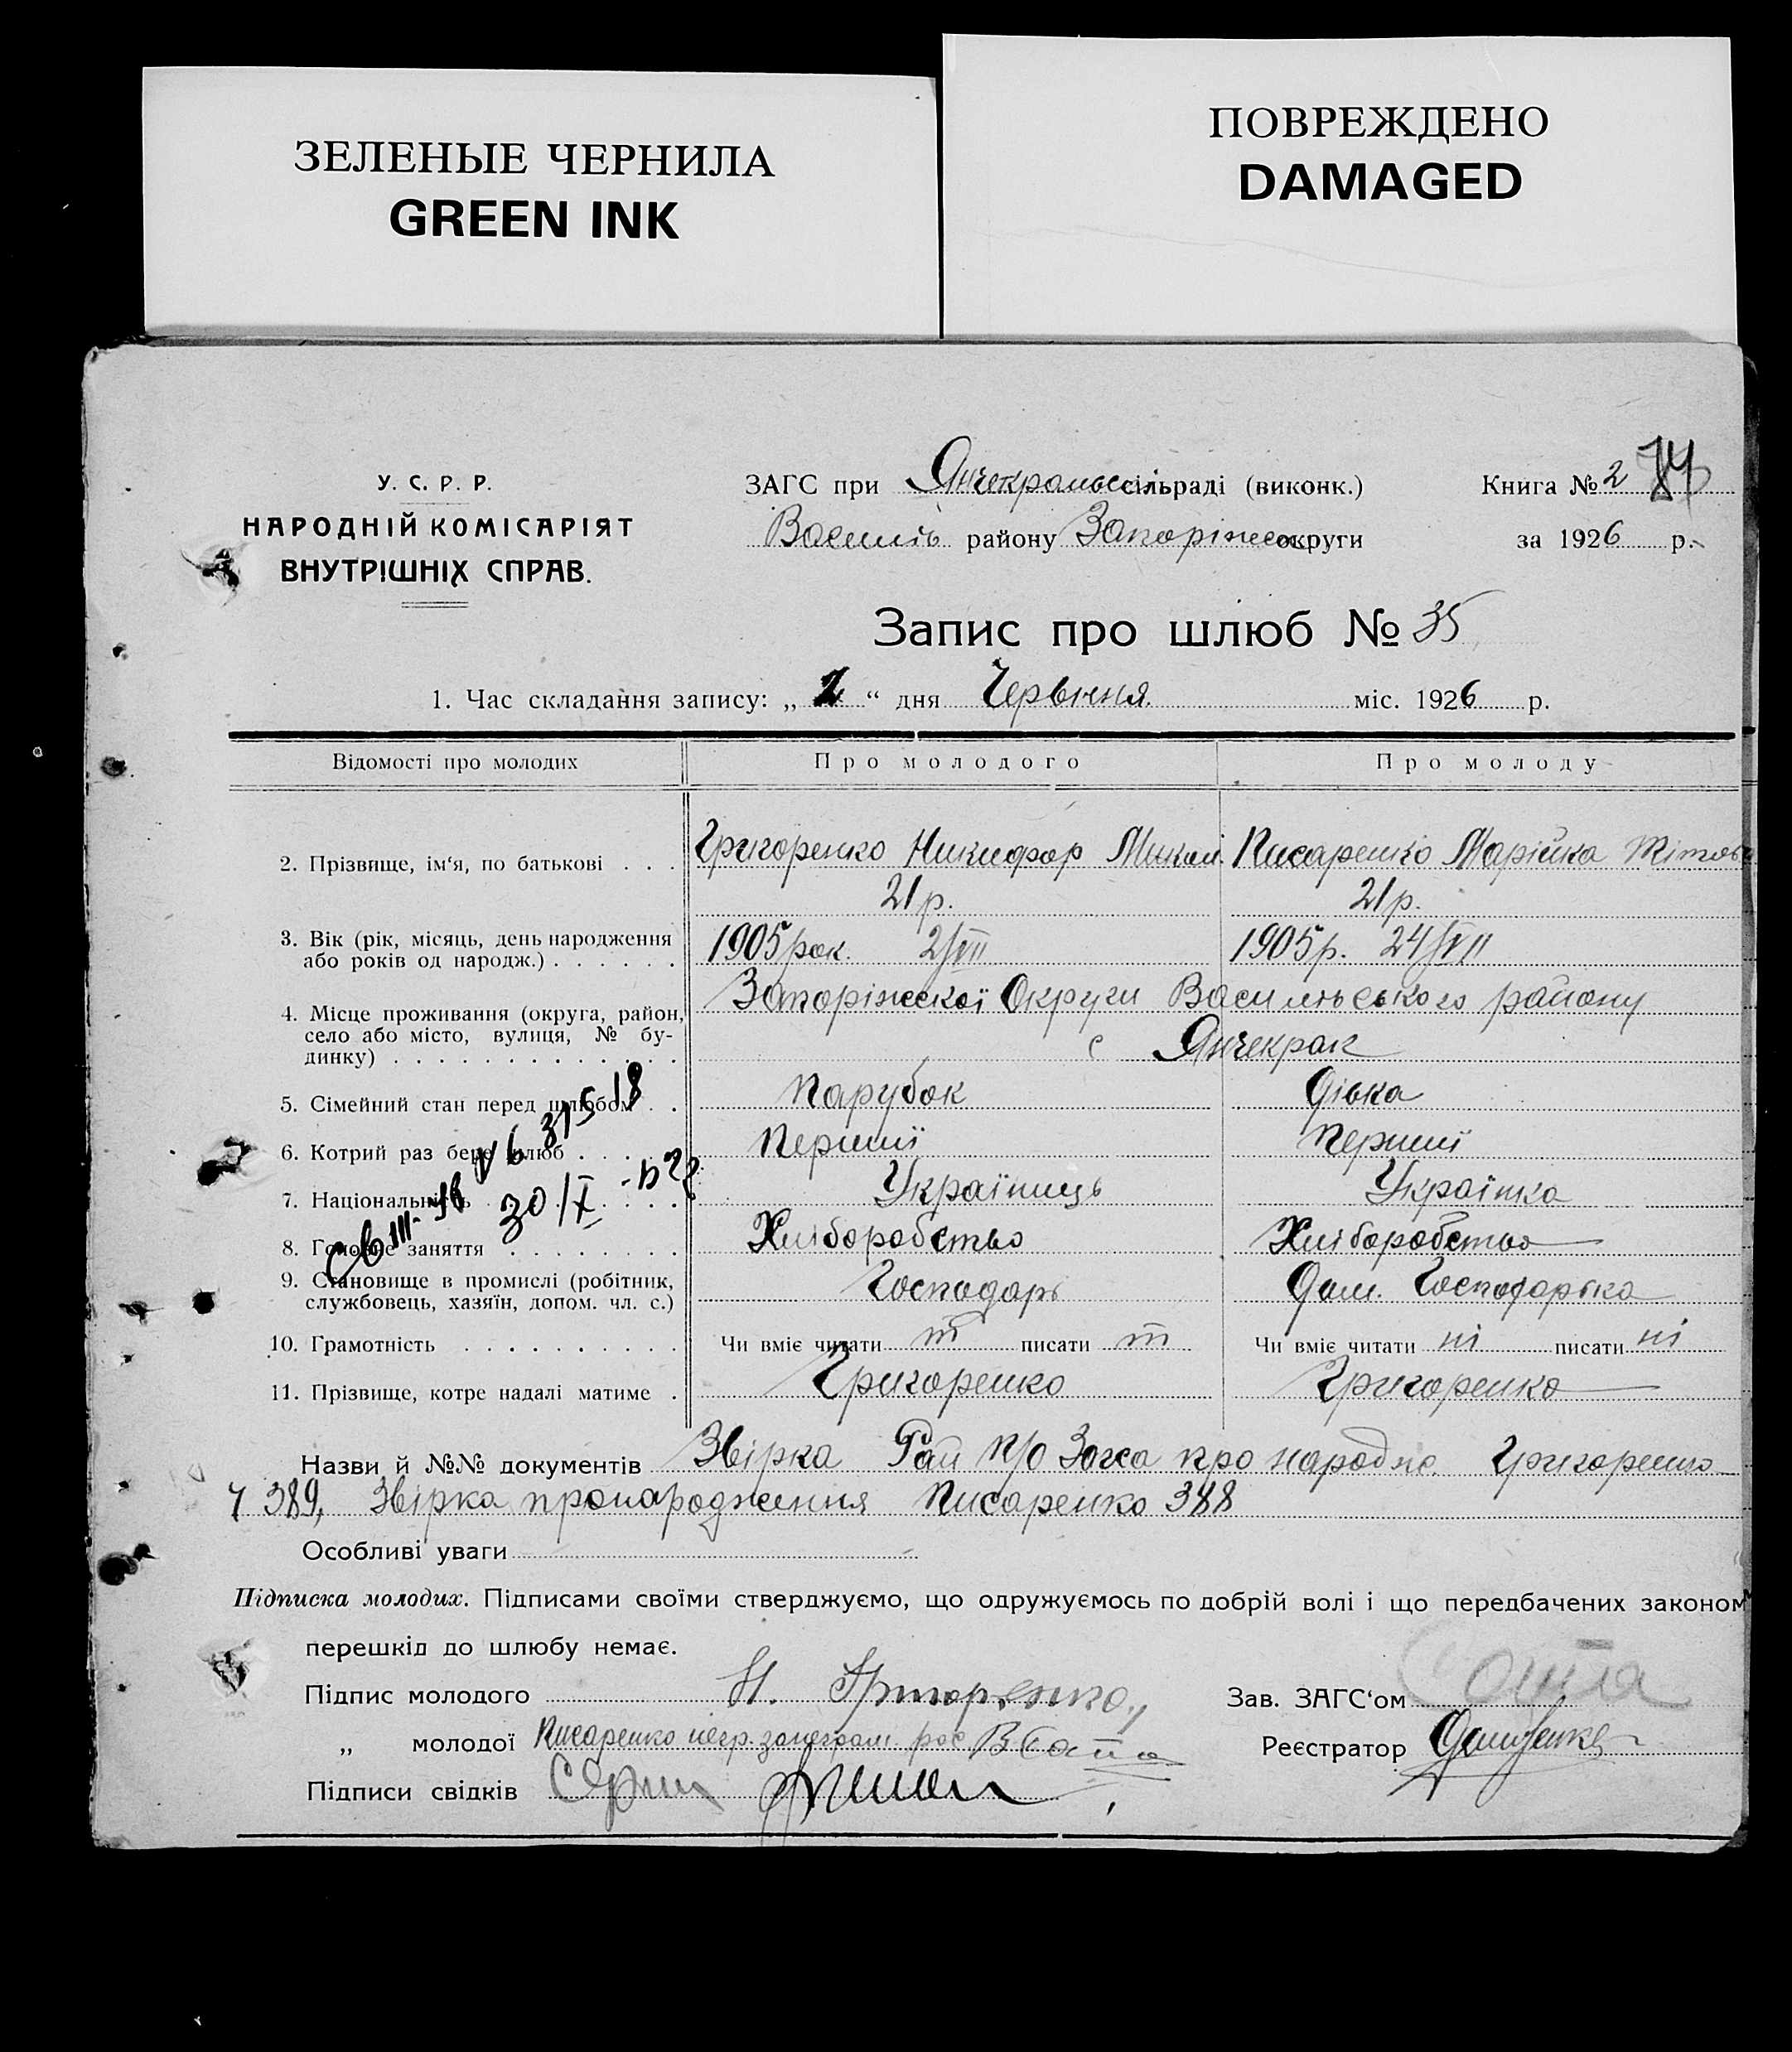 ЗЕЛЕНЫЕ ЧЕРНИЛА
GREEN INK
ПОВРЕЖДЕНО
DAMAGED
У. С. Р. Р.
НАРОДНІЙ КОМІСАРІЯТ
ВНУТРІШНІХ СПРАВ.
ЗАГС при сільраді (виконк.)
Книга № 2
району округи
за 1926 р.
Запис про шлюб № 35
1. Час складання запису: „ 2 “ дня Червня міс. 1926 р.
Відомості про молодих Про молодого Про молоду
2. Прізвище, ім‘я, по батькові . . . Григоренко Никифор Микол. Писаренко Марійка
21 р. 21 р.
3. Вік (рік, місяць, день народження 1905 рок. 2/VII 1905 р. 24/VII
або років од народж.) . . . . . .
4. Місце проживання (округа, район, Запоріжської Округи Васильського району
село або місто, вулиця, № бу-
динку) . . . . . . . . . . . . . с Янчекрак
5. Сімейний стан перед шлюбом . . Парубок Дівка
6. Котрий раз бере шлюб . . . . . Перший Перший
7. Національність . . . . . . . . Українець Українка
8. Головне заняття . . . . . . . . Хліборобство Хліборобство
9. Становище в промислі (робітник, Господарь Дом. Господарка
службовець, хазяїн, допом. чл. с.)
10. Грамотність . . . . . . . . . . Чи вміє читати т писати т Чи вміє читати ні писати ні
11. Прізвище, котре надалі матиме . Григоренко Григоренко
Назви й №№ документів Звірка про народже. Григоренко
389, Звірка про народження Писаренко 388
Особливі уваги
Підписка молодих. Підписами своїми стверджуємо, що одружуємось по добрій волі і що передбачених законом
перешкід до шлюбу немає.
Підпис молодого Н. Григоренко
Зав. ЗАГС‘ом
„ молодої Писаренко
Реєстратор
Підписи свідків